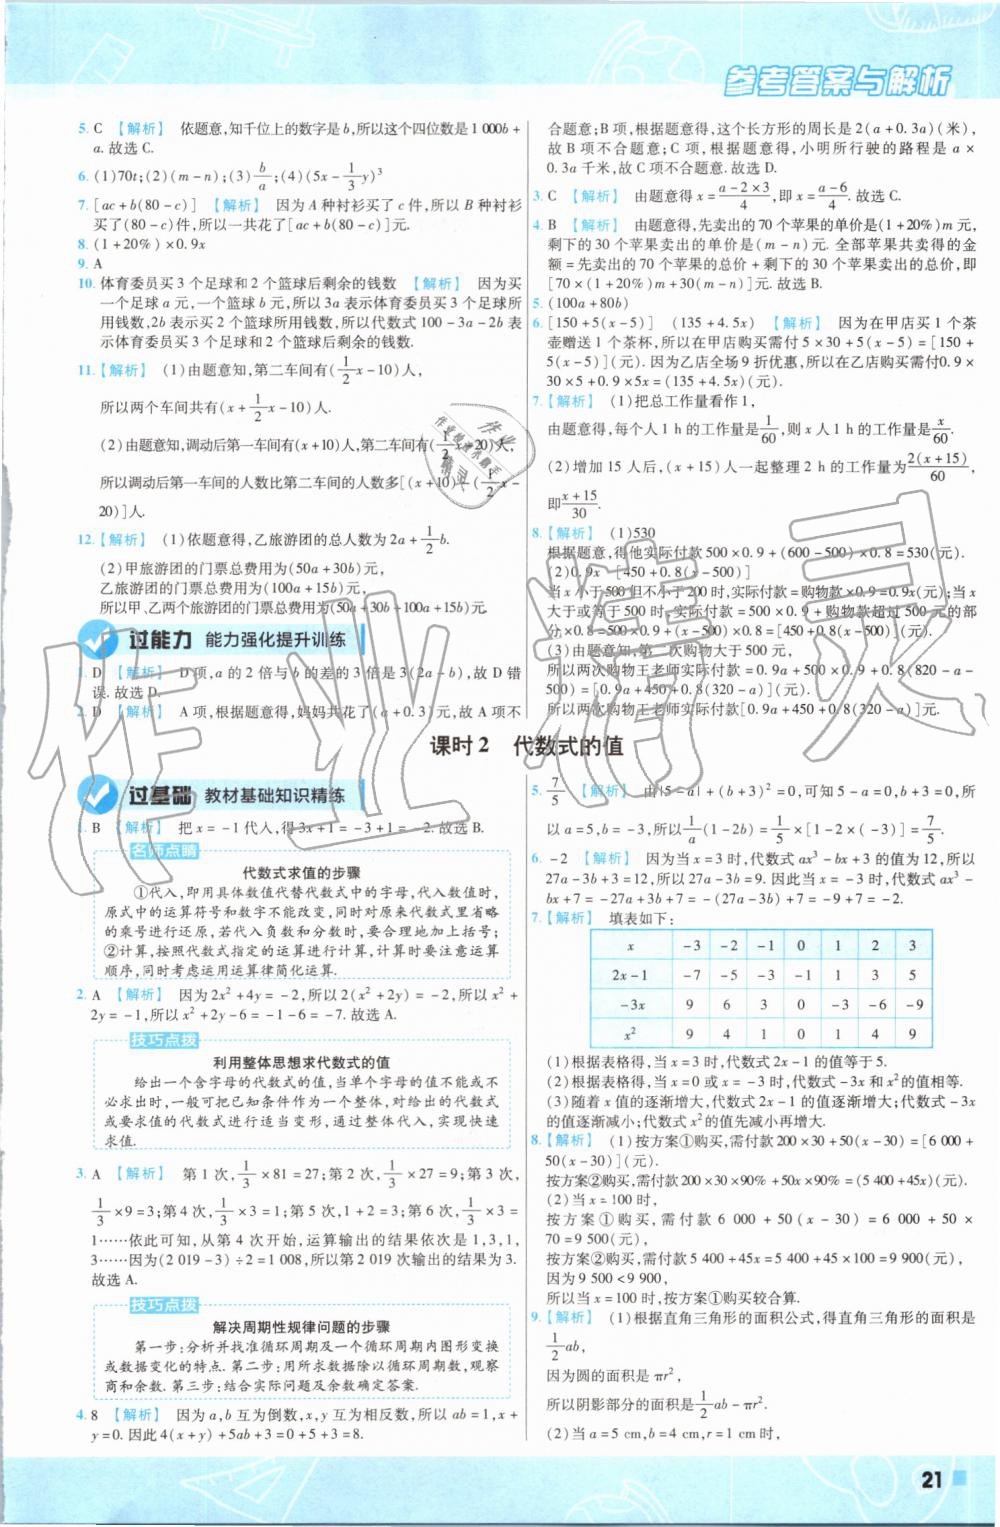 参考答案与解析
5. C 【解析】 依题意,知千位上的数字是b,所以这个四位数是1 000b+
a.故选C.
6. (1)70t;(2)(m-n);(3)b/a;(4)(5x-1/3y)³
7. [ac+b(80-c)] 【解析】 因为A种衬衫买了c件,所以B种衬衫
买了(80-c)件,所以一共花了[ac+b(80-c)]元.
8. (1+20%)×0.9x
9. A
10. 体育委员买3个足球和2个篮球后剩余的钱数 【解析】 因为买
一个足球a元,一个篮球b元,所以3a表示体育委员买3个足球所
用钱数,2b表示买2个篮球所用钱数,所以代数式100-3a-2b表
示体育委员买3个足球和2个篮球后剩余的钱数.
11. 【解析】 (1)由题意知,第二车间有(1/2x-10)人,
所以两个车间共有(x+1/2x-10)人.
(2)由题意知,调动后第一车间有(x+10)人,第二车间有(1/2x-20)人,
所以调动后第一车间的人数比第二车间的人数多[(x+10)-(1/2x-
20)]人.
12. 【解析】 (1)依题意得,乙旅游团的总人数为2a+1/2b.
(2)甲旅游团的门票总费用为(50a+30b)元,
乙旅游团的门票总费用为(100a+15b)元,
所以甲、乙两个旅游团的门票总费用为(50a+30b+100a+15b)元.
过能力 能力强化提升训练
1. D 【解析】 D项,a的2倍与b的差的3倍是3(2a-b),故D错
误.故选D.
2. D 【解析】 A项,根据题意得,妈妈共花了(a+0.3)元,故A项不
合题意;B项,根据题意得,这个长方形的周长是2(a+0.3a)(米),
故B项不合题意;C项,根据题意得,小明所行驶的路程是a×
0.3a千米,故C项不合题意.故选D.
3. C 【解析】 由题意得x=(a-2×3)/4,即x=(a-6)/4.故选C.
4. B 【解析】 由题意得,先卖出的70个苹果的单价是(1+20%)m元,
剩下的30个苹果卖出的单价是(m-n)元.全部苹果共卖得的金
额=先卖出的70个苹果的总价+剩下的30个苹果的总价,即
[70×(1+20%)m+30(m-n)]元.故选B.
5. (100a+80b)
6. [150+5(x-5)] (135+4.5x) 【解析】 因为在甲店买1个茶
壶赠送1个茶杯,所以在甲店购买需付5×30+5(x-5)=[150+
5(x-5)](元).因为乙店全场9折优惠,所以在乙店购买需付0.9×
30×5+0.9×5x=(135+4.5x)(元).
7. 【解析】 (1)把总工作量看作1,
由题意得,每个人1 h的工作量是1/60,则x人1 h的工作量是x/60.
(2)增加15人后,(x+15)人一起整理2 h的工作量为2(x+15)/60,
即(x+15)/30.
8. 【解析】 (1)530
根据题意,得他实际付款500×0.9+(600-500)×0.8=530(元).
(2)0.9x [450+0.8(x-500)]
当x小于500但不小于200时,实际付款=购物款×0.9=0.9x(元);当x
大于或等于500时,实际付款=500×0.9+购物款超过500元的部
分×0.8=500×0.9+(x-500)×0.8=[450+0.8(x-500)](元).
(3)由题意知,第二次购物大于500元,
所以两次购物王老师实际付款=0.9a+500×0.9+0.8(820-a-
500)=[0.9a+450+0.8(320-a)](元).
所以两次购物王老师实际付款[0.9a+450+0.8(320-a)]元.
课时2 代数式的值
过基础 教材基础知识精练
1. B 【解析】 把x=-1代入,得3x+1=-3+1=-2.故选B.
名师点睛
代数式求值的步骤
①代入,即用具体数值代替代数式中的字母,代入数值时,
原式中的运算符号和数字不能改变,同时对原来代数式里省略
的乘号进行还原,若代入负数和分数时,要合理地加上括号;
②计算,按照代数式指定的运算进行计算,计算时要注意运算
顺序,同时考虑运用运算律简化运算.
2. A 【解析】 因为2x²+4y=-2,所以2(x²+2y)=-2,所以x²+
2y=-1,所以x²+2y-6=-1-6=-7.故选A.
技巧点拨
利用整体思想求代数式的值
给出一个含字母的代数式的值,当单个字母的值不能或不
必求出时,一般可把已知条件作为一个整体,对给出的代数式
或要求值的代数式进行适当变形,通过整体代入,实现快速
求值.
3. A 【解析】 第1次,1/3×81=27;第2次,1/3×27=9;第3次,
1/3×9=3;第4次,1/3×3=1;第5次,1+2=3;第6次,1/3×3=
1……依此可知,从第4次开始,运算输出的结果依次是1,3,1,
3……因为(2 019-3)÷2=1 008,所以第2 019次输出的结果为3.
故选A.
技巧点拨
解决周期性规律问题的步骤
第一步:分析并找准循环周期及一个循环周期内图形变换
或数据变化的特点.第二步:用所求数据除以循环周期数,观察
商和余数.第三步:结合实际问题及余数确定答案.
4. 8 【解析】 因为a,b互为倒数,x,y互为相反数,所以ab=1,x+
y=0.因此4(x+y)+5ab+3=0+5+3=8.
5. 7/5 【解析】 由|5-a|+(b+3)²=0,可知5-a=0,b+3=0,所
以a=5,b=-3,所以1/a(1-2b)=1/5×[1-2×(-3)]=7/5.
6. -2 【解析】 因为当x=3时,代数式ax³-bx+3的值为12,所以
27a-3b+3=12,所以27a-3b=9.因此当x=-3时,代数式ax³-
bx+7=-27a+3b+7=-(27a-3b)+7=-9+7=-2.
7. 【解析】 填表如下:
x -3 -2 -1 0 1 2 3
2x-1 -7 -5 -3 -1 1 3 5
-3x 9 6 3 0 -3 -6 -9
x² 9 4 1 0 1 4 9
(1)根据表格得,当x=3时,代数式2x-1的值等于5.
(2)根据表格得,当x=0或x=-3时,代数式-3x和x²的值相等.
(3)随着x值的逐渐增大,代数式2x-1的值逐渐增大;代数式-3x
的值逐渐减小;代数式x²的值先减小再增大.
8. 【解析】 (1)按方案①购买,需付款200×30+50(x-30)=[6 000+
50(x-30)](元);
按方案②购买,需付款200×30×90%+50x×90%=(5 400+45x)(元).
(2)当x=100时,
按方案①购买,需付款6 000+50(x-30)=6 000+50×
70=9 500(元),
按方案②购买,需付款5 400+45x=5 400+45×100=9 900(元),
因为9 500<9 900,
所以当x=100时,按方案①购买较合算.
9. 【解析】 (1)根据直角三角形的面积公式,得直角三角形的面积是
1/2ab,
因为圆的面积是πr²,
所以阴影部分的面积是1/2ab-πr².
(2)当a=5 cm,b=8 cm,r=1 cm时,
21
作业精灵